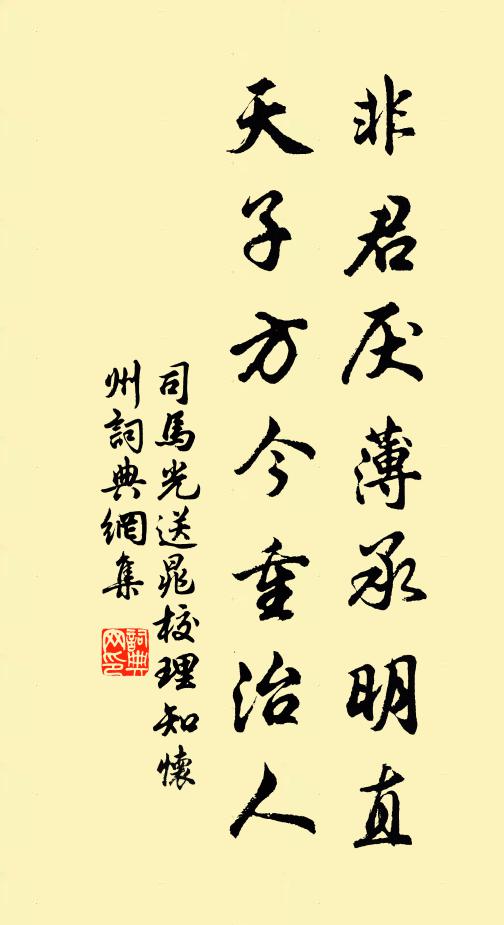 非君厌薄承明直
天子方今重治人
司馬光送晁校理知懷
州詞典網集
詞典网印